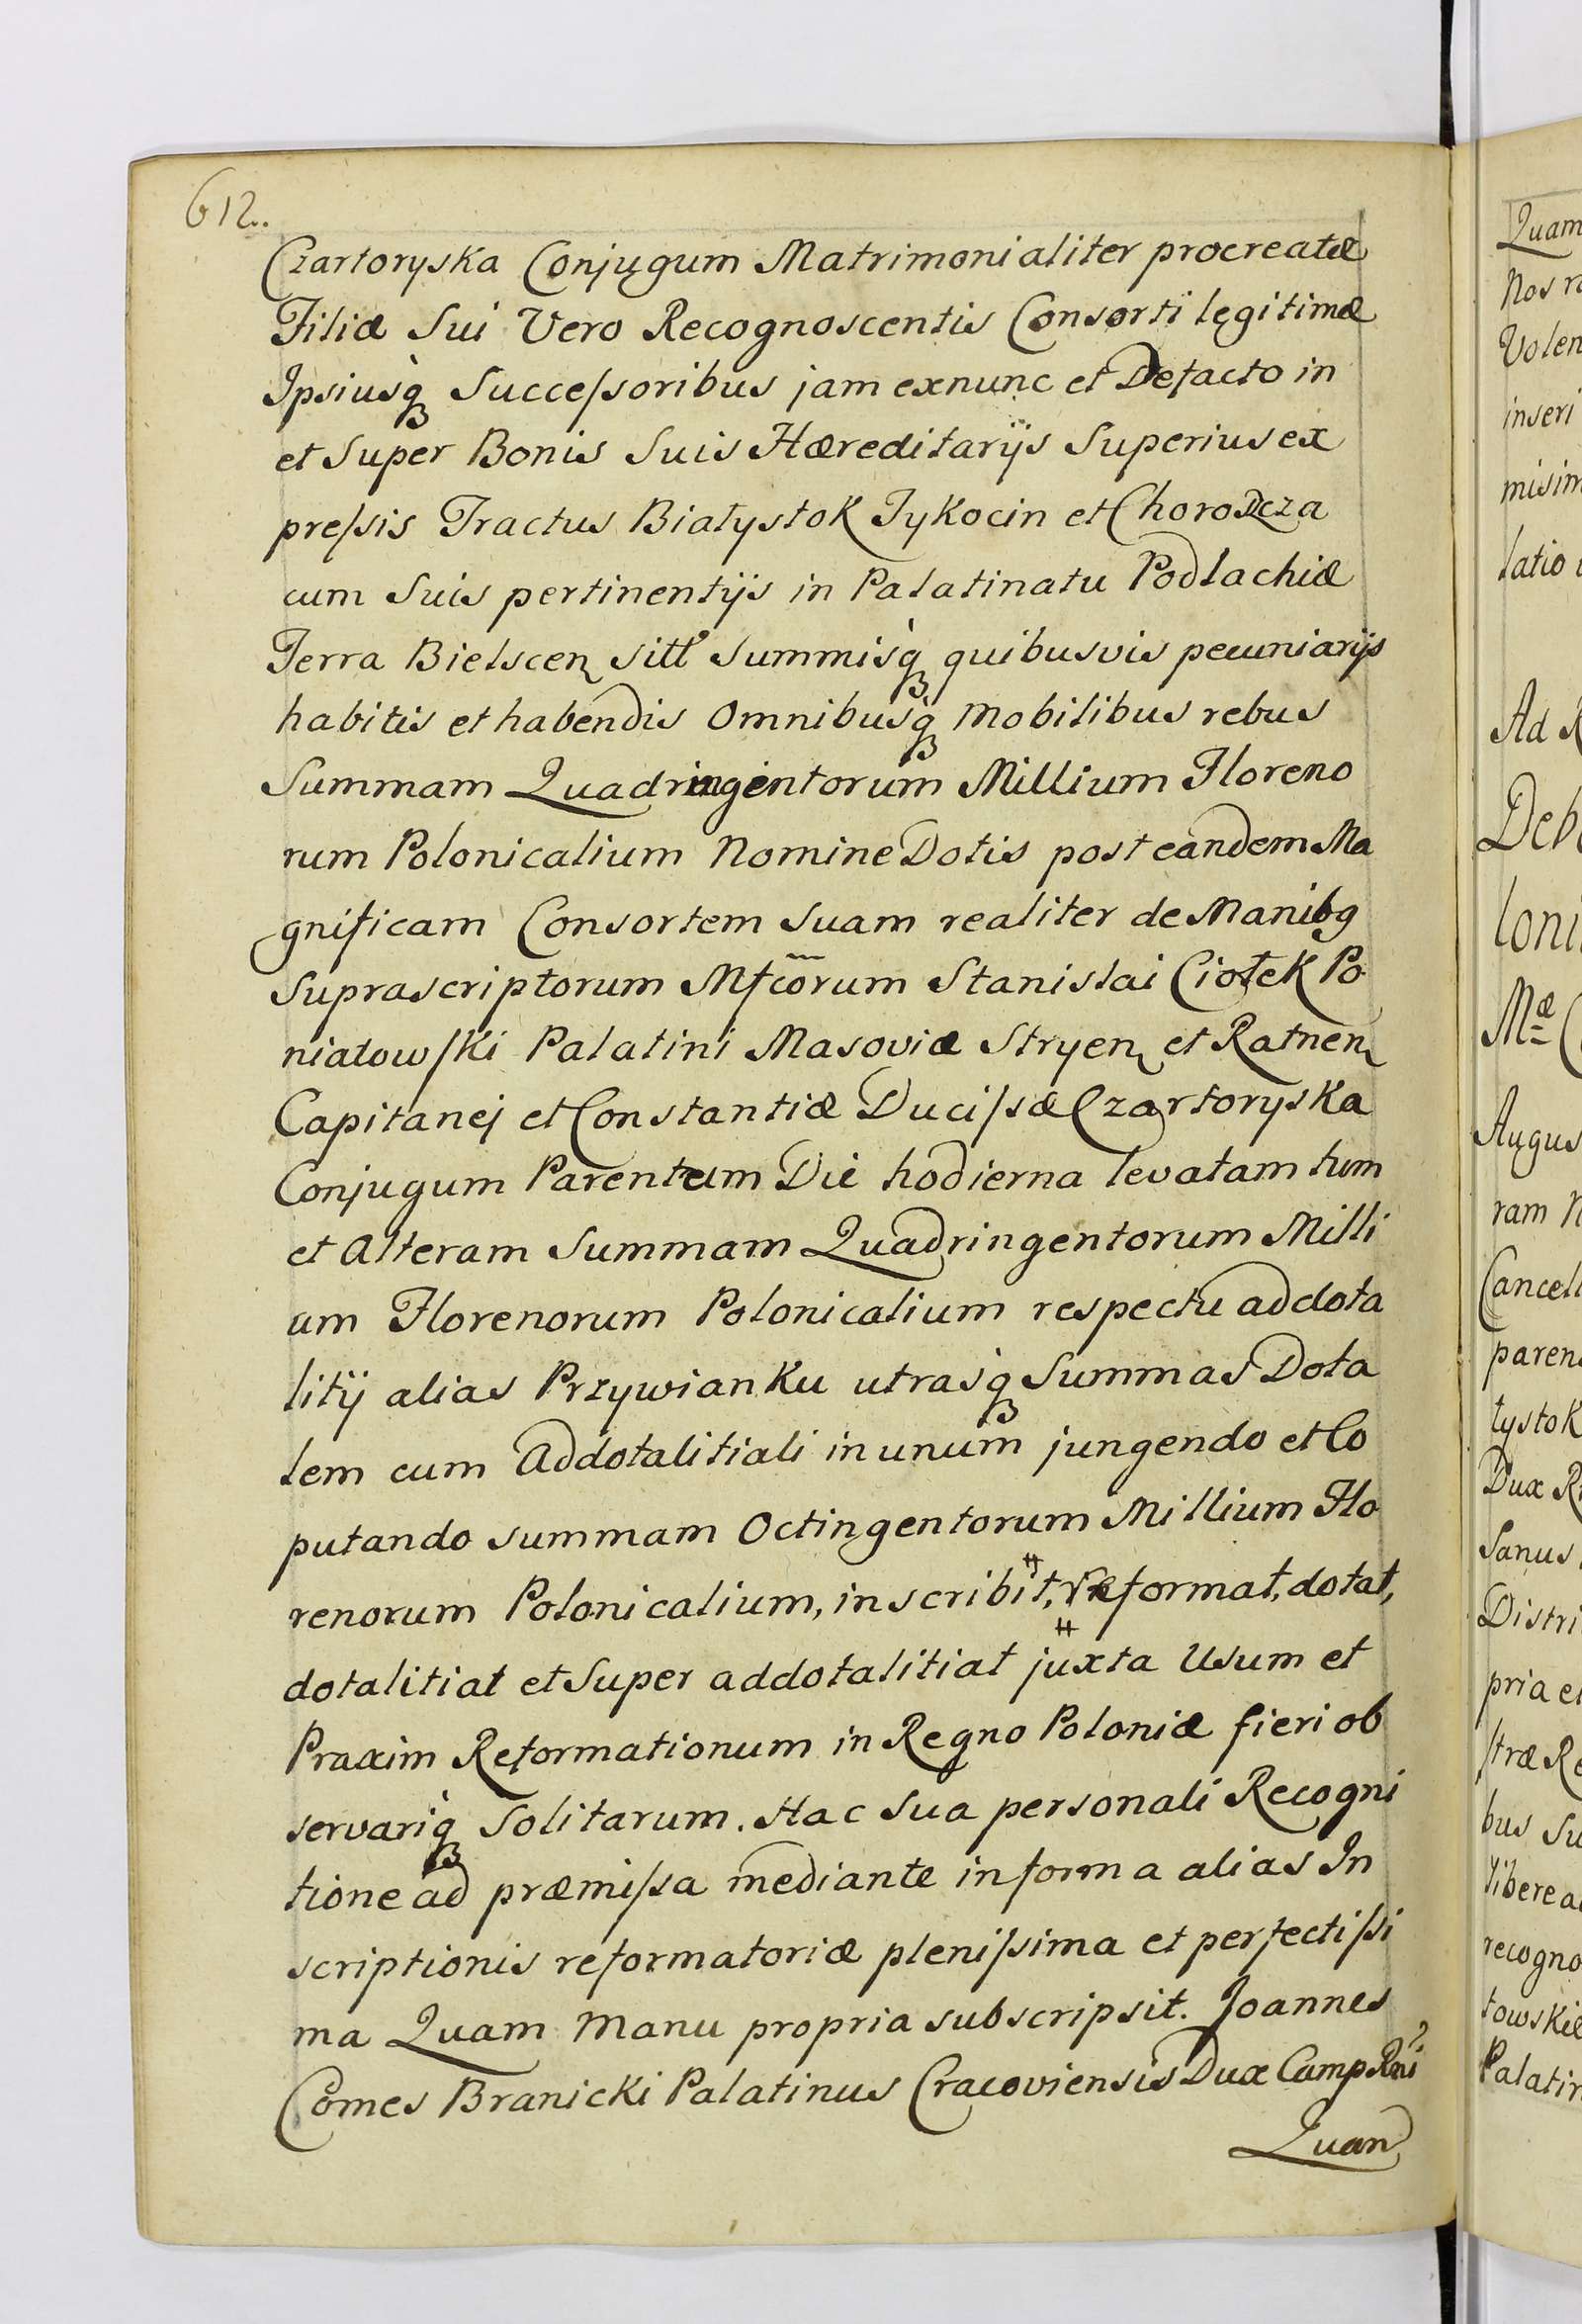 612.
Czartoryska Conjugum Matrimonialiter procreatæ
Filiæ Sui Vero Recognoscentis Consorti legitimæ
Ipsiusq Succeſsoribus jam exnunc et Defacto in
et Super Bonis Suis Hæreditarijs Superius ex
preſsis Tractus Białystok Tykocin et Chorodcza
cum Suis pertinentijs in Palatinatu Podlachiæ
Terra Bielscen sitt Summisq quibusvis pecuniarijs
habitis et habendis Omnibusq Mobilibus rebus
Summam Quadringentorum Millium Floreno
rum Polonicalium Nomine Dotis post eandem Ma
gnificam Consortem Suam realiter de Manibg
Suprascriptorum Mfcorum Stanislai Ciołek Po
niatowſki Palatini Masoviæ Stryen et Ratnen
Capitanej et Constantiæ Duciſsæ Czartoryska
Conjugum Parentum Die hodierna levatam tum
et Alteram Summam Quadringentorum Milli
um Florenorum Polonicalium respectu addota
litij alias Przywianku utrasq Summas Dota
lem cum Addotalitiali in unum jungendo et Co
putando summam Octingentorum Millium Flo
renorum Polonicalium, inscribit, reformat, dotat,
dotalitiat et Super addotalitiat juxta Usum et
Praxim Reformationum in Regno Poloniæ fieri ob
servariq Solitarum. Hac Sua personali Recogni
tione ad præmiſsa mediante in forma alias In
scriptionis reformatoriæ pleniſsima et perfectiſsi
ma Quam Manu propria subscripsit. Joannes
Comes Branicki Palatinus Cracoviensis Dux Camp Rni
Quam
Quam
Nos
Volen
inseri
misim
latio
Ad
Deb
loni
Mæ
Augus
ram
Cancell
paren
łystok
Dux
Sanus
Distri
pria et
ſtræ Re
bus Su
libere a
recogno
towskie
Palatin